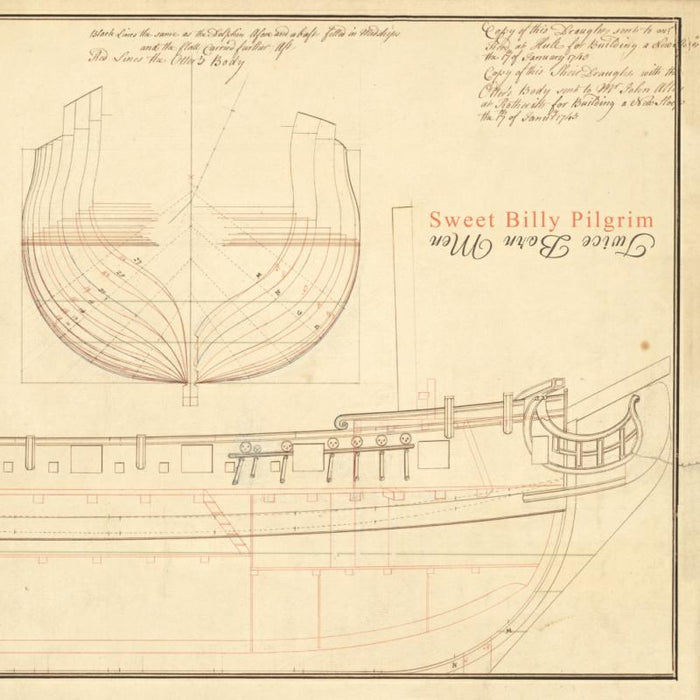 Black Lines the same as the Dolphin Afore and abaft filled in Midships
and the Flatt Carried further Aft
Red Lines the Otter's Body
Copy of this Draught sent to
at Hull for Building a New
the of January 1743
Copy of this Shear Draught with the
Otter's Body sent to Mr John
at Rotherith for Building a New Sloop
the of 1743
Sweet Billy Pilgrim
Twice Born Men